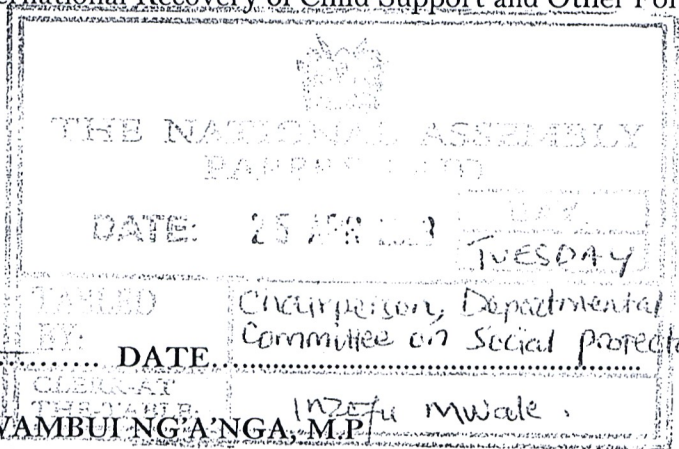 Recovery of Child Support and Other For
THE NATIONAL ASSEMBLY
PAPERS LAID
DATE: 25 APR
DAY.
TUESDAY
TABLED
BY:
Chairperson, Departmental
Committee on Social protect
DATE
CLERK-AT
THE-TABLE:
Inzofu Mwale.
WAMBUI NG'A'NGA, M.P